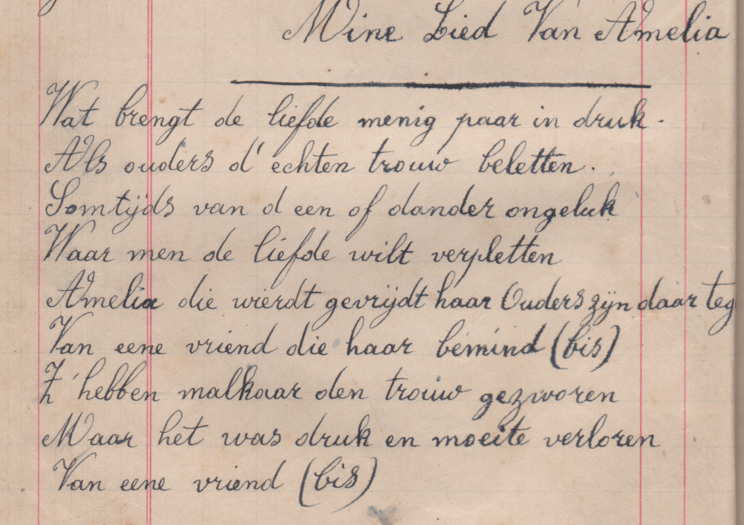 Mine Lied Van Amelia
Wat brengt de liefde menig paar in druk.
Als ouders d' echten trouw beletten.
Somtijds van d een of dander ongeluk
Waar men de liefde wilt verpletten
Amelia die wierdt gevrijdt haar Ouders zijn daar teg
Van eene vriend die haar bemind (bis)
Z' hebben malkaar den trouw gezworen
Maar het was druk en moeite verloren
Van eene vriend (bis)